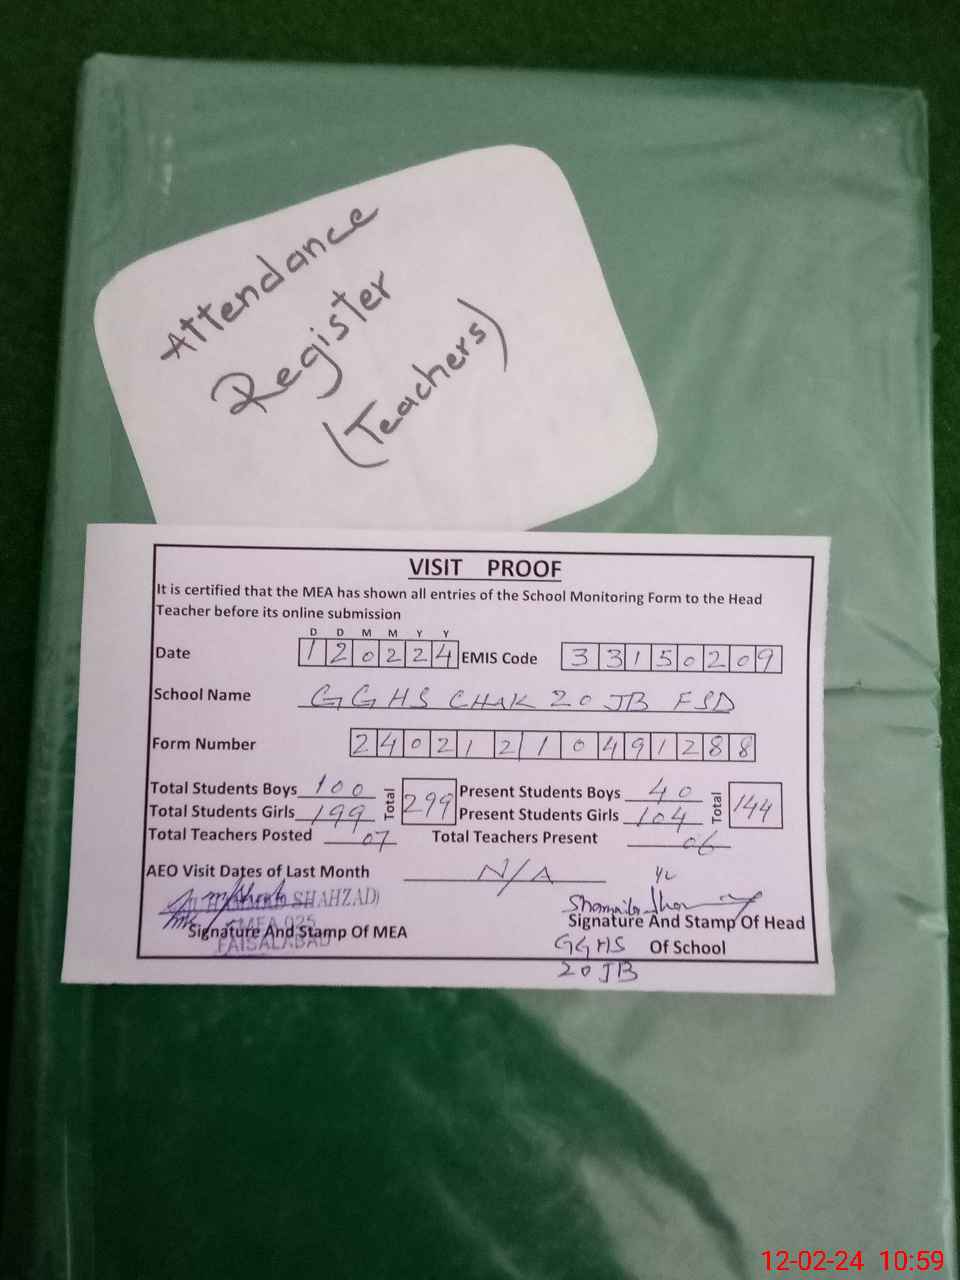 Attendance
Register
(Teachers)
VISIT PROOF
It is certified that the MEA has shown all entries of the School Monitoring Form to the Head
Teacher before its online submission
D D M M Y Y
Date 120224 EMIS Code 33150209
School Name GGHS CHAK 20 JB FSD
Form Number 24021210491288
Total Students Boys 100 Total 299 Present Students Boys 40 Total 144
Total Students Girls 199 Present Students Girls 104
Total Teachers Posted 07 Total Teachers Present 06
AEO Visit Dates of Last Month N/A
SHAHZAD)
Signature And Stamp Of MEA Signature And Stamp Of Head
MEA 025
FAISALABAD
GGHS Of School
20 JB
12-02-24 10:59